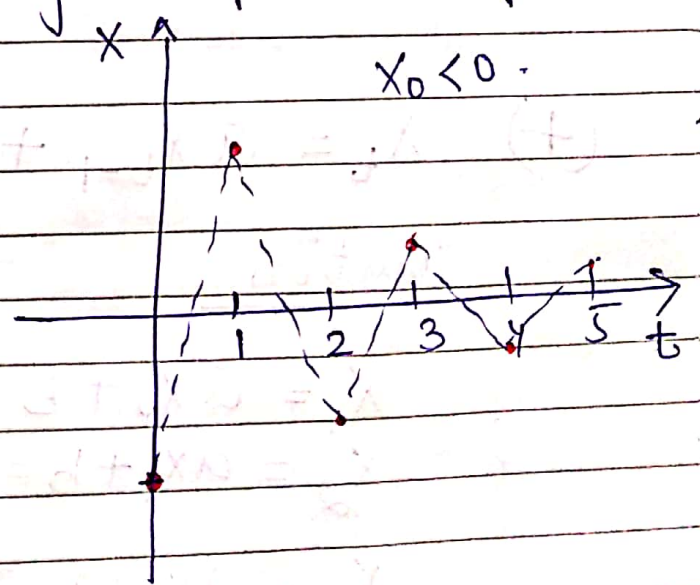 X
X₀ < 0 .
1 2 3 4 5
t